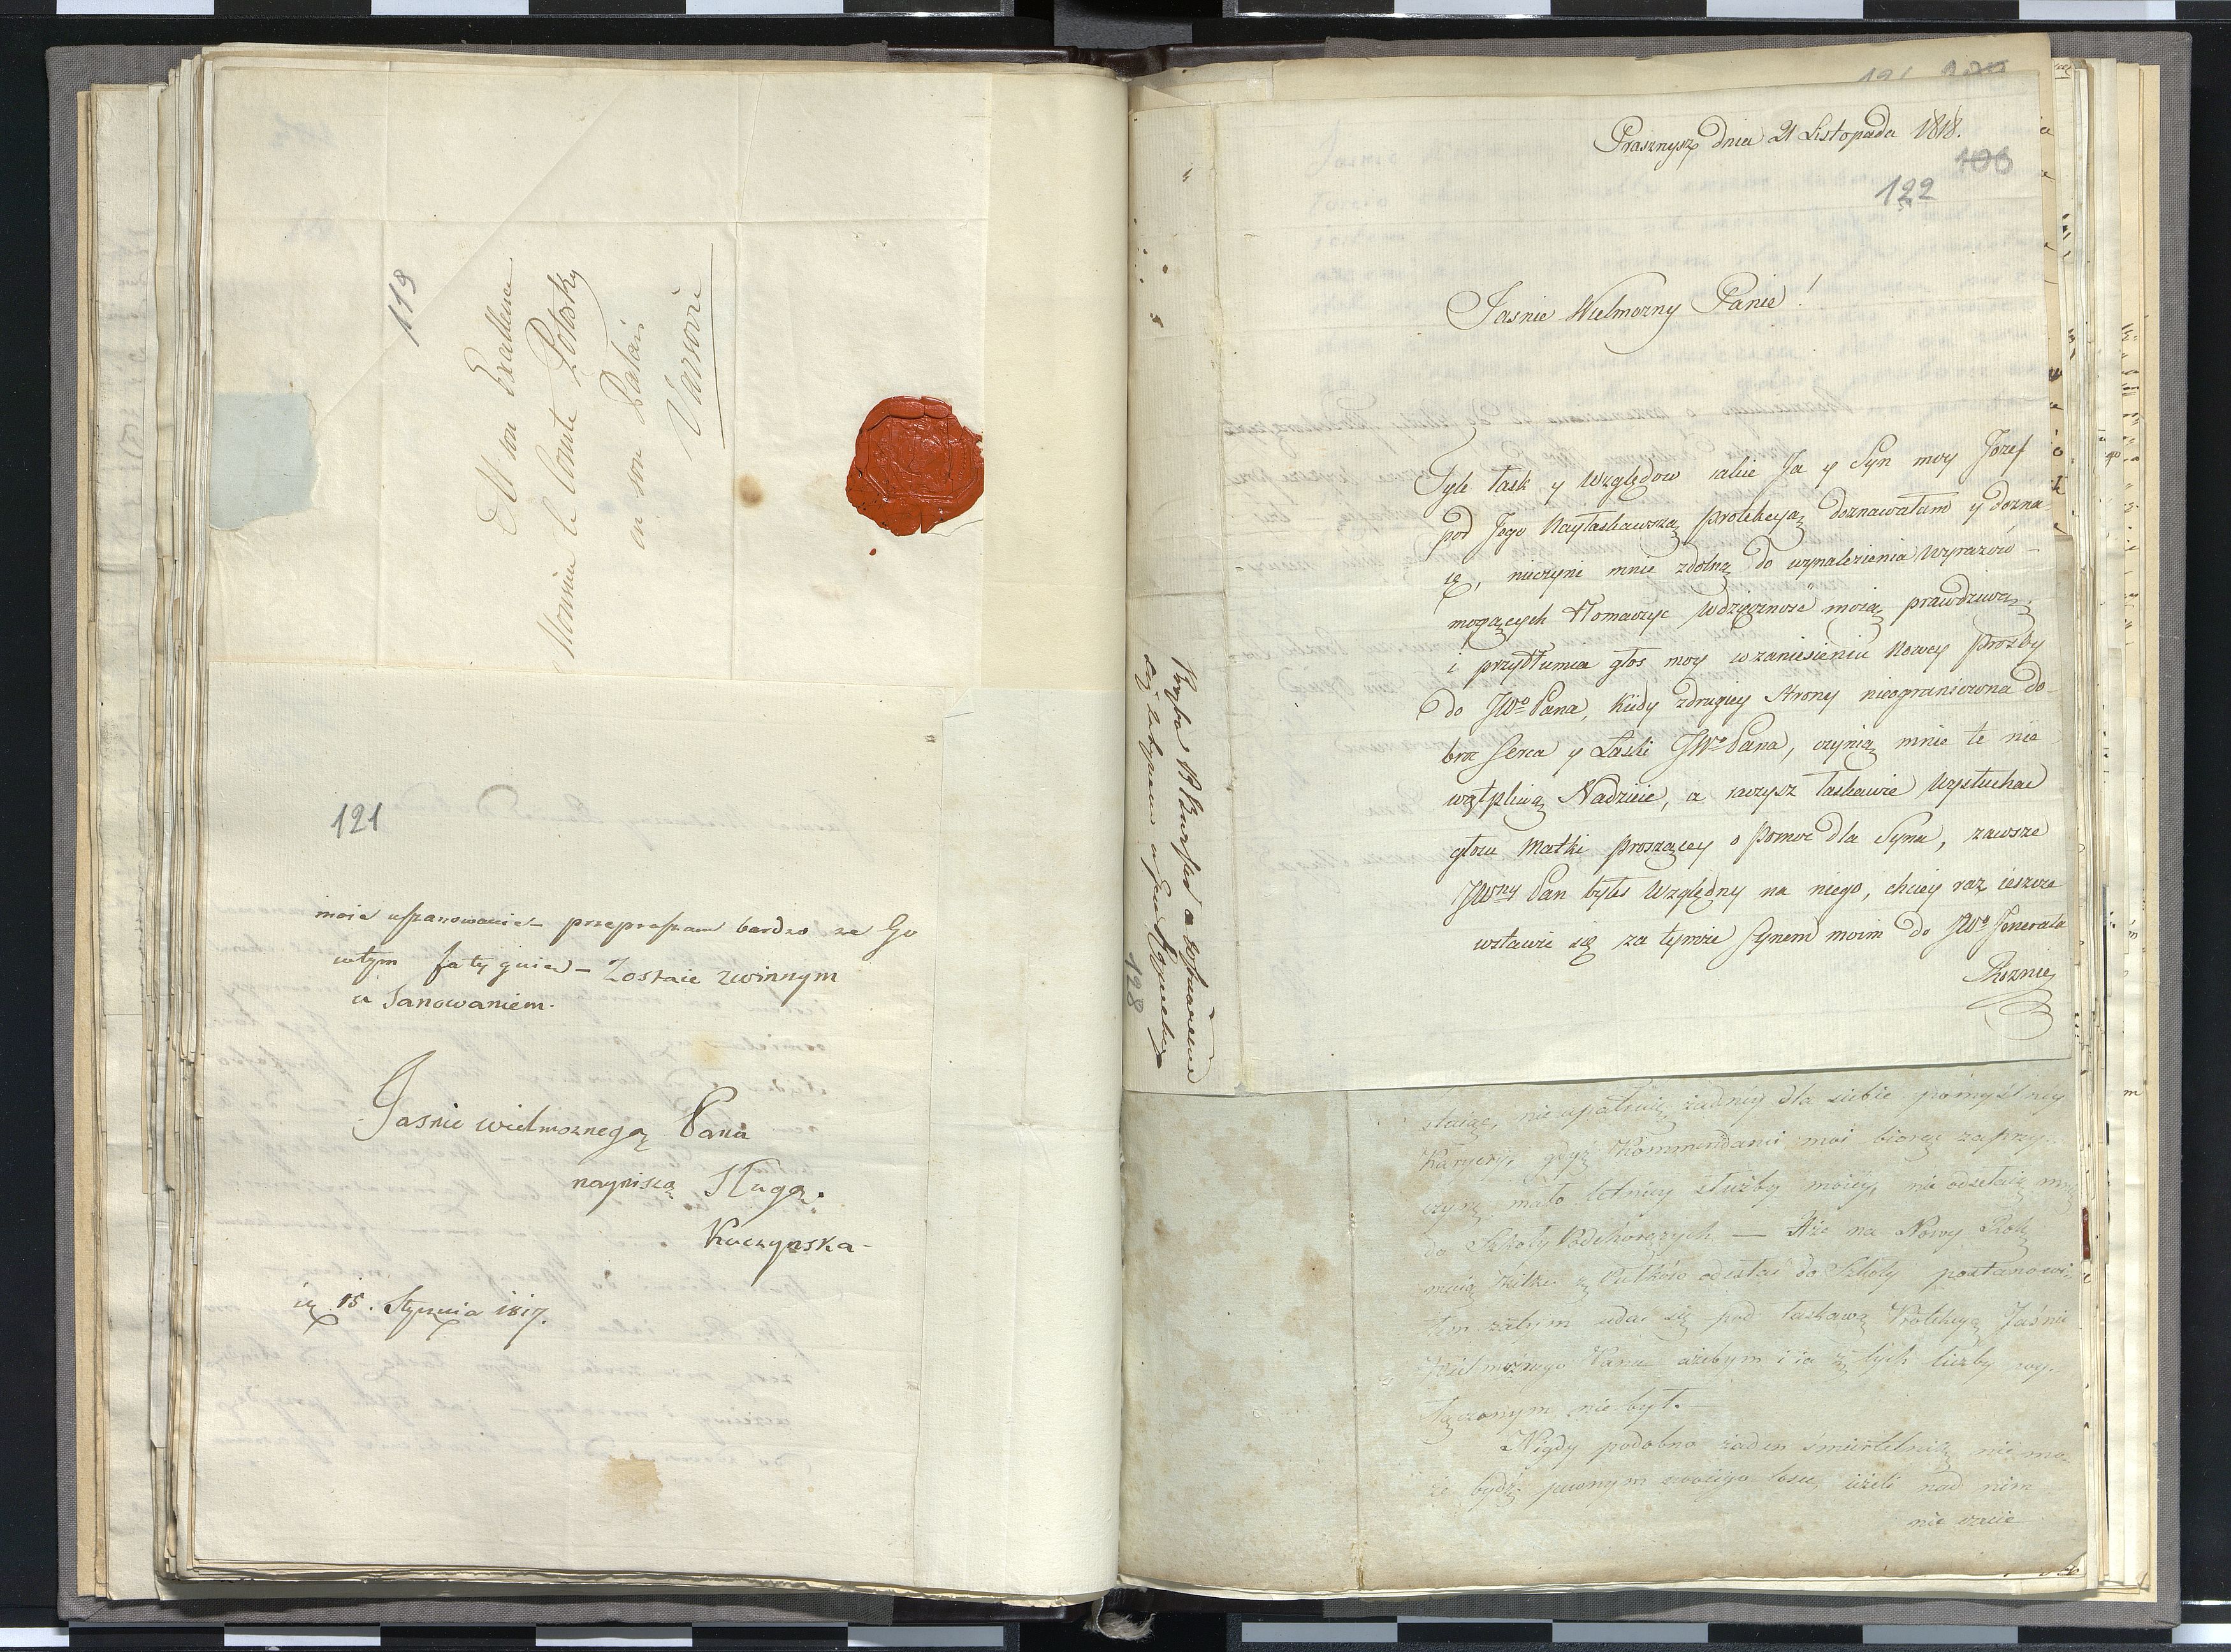 119
A son Excellence
Monsieur le Comte Potosky
en son Palais
Varsovie
121
moie uszanowanie – przepraszam bardzo ze Go
wtym fatyguie – Zostaie zwinnym
u Sanowaniem.
Jasnie wielmoznegą Pana
nayniszą Sługą.
Kuczynska –
15. Stycznia 1817.
121
Prasznysz dnia 21 Listopada 1818.
106
122
Jasnie Wielmozny Panie!
Tyle łask y względow iakie Ja y Syn moy Jozef
pod Jego Nayłaskawszą protekcyą doznawałam y dozna-
ię, nieczyni mnie zdolną do wynalezienia wyrazów –
mogących tłomaczyc wdzięcznosc moią prawdziwą,
i przytłumia głos moy wzaniesieniu Nowey prozby
do JWo Pana, kiedy zdrugiey strony nieograniczona do-
broc serca y Łaski JWo Pana, czynią mnie te nie
wątpliwą Nadzieie, a raczysz łaskawie wysłuchac
głosu Matki proszącey o pomoc dla Syna, zawsze
JWny Pan byłes Względny na niego, chciey raz ieszcze
wstawic się za tymże Synem moim do JWo Jenerała
Roznie
Prozba
128
staiąc, nie upatruię żadney dla siebie pomyślney
Karyery, gdyż Kommendanci moi biorąc za przy-
czynę mało letniey służby moiey, nie odsełaią mnie
do Szkoły Podchorążych — Iże na Nowy Rok
maią kilku z Pułków odesłać do Szkoły postanowi-
łem zatym udać się pod łaskawą Protekcyą Jaśnie
Wielmożnego Pana ażebym i ia z tych liczby wy-
łączonym nie był. –
Nigdy podobno żaden śmiertelnik nie mo-
że bydź pewnym swoiego losu, ieżeli nad nim
nie czuie